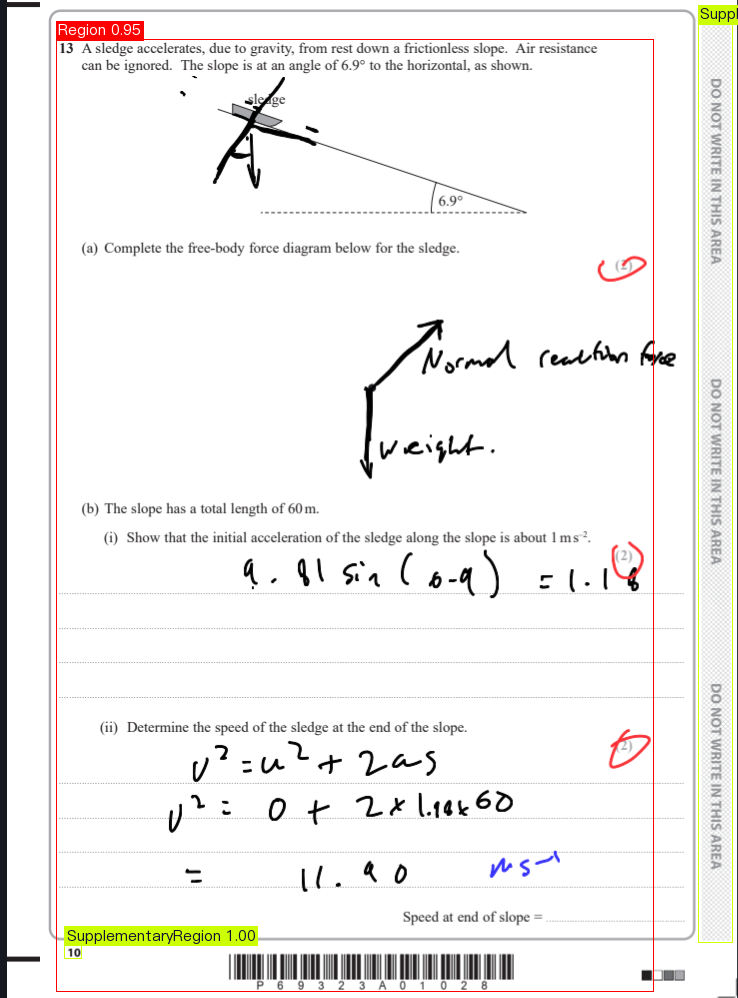 Region 0.95
Suppl
13 A sledge accelerates, due to gravity, from rest down a frictionless slope. Air resistance
can be ignored. The slope is at an angle of 6.9° to the horizontal, as shown.
sledge
6.9°
(a) Complete the free-body force diagram below for the sledge.
(2)
Normal reaction force
Weight.
(b) The slope has a total length of 60 m.
(i) Show that the initial acceleration of the sledge along the slope is about 1 m s⁻².
(2)
9.81 sin (6.9) = 1.18
(ii) Determine the speed of the sledge at the end of the slope.
(2)
v² = u² + 2as
v² = 0 + 2 × 1.18 × 60
= 11.90 ms⁻¹
Speed at end of slope =
SupplementaryRegion 1.00
10
P 6 9 3 2 3 A 0 1 0 2 8
DO NOT WRITE IN THIS AREA
DO NOT WRITE IN THIS AREA
DO NOT WRITE IN THIS AREA